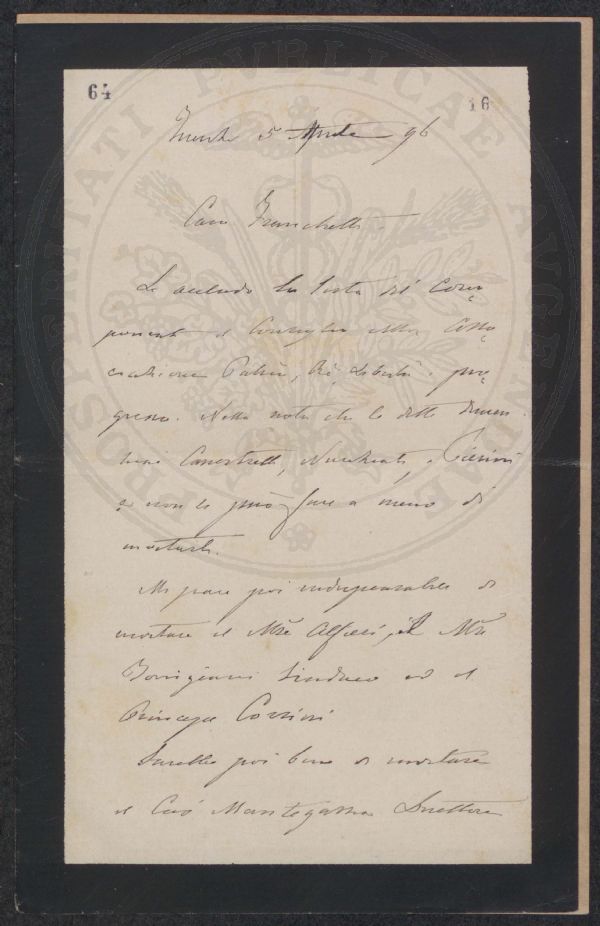 64
16
5 Aprile 96
Caro Franchetti
Le accludo la lista dei Com
ponenti il Consiglio della Asso
ciazione Patria, Re, Libertà e pro
gresso. Nella nota che le detti
Canestrelli, e
e non si può fare a meno di
invitarli.
Mi pare poi indispensabile di
invitare il Mse Alfieri, il Mse
Torrigiani Sindaco ed il
Principe Corsini
Sarebbe poi bene di invitare
il Cav Mantegazza Direttore